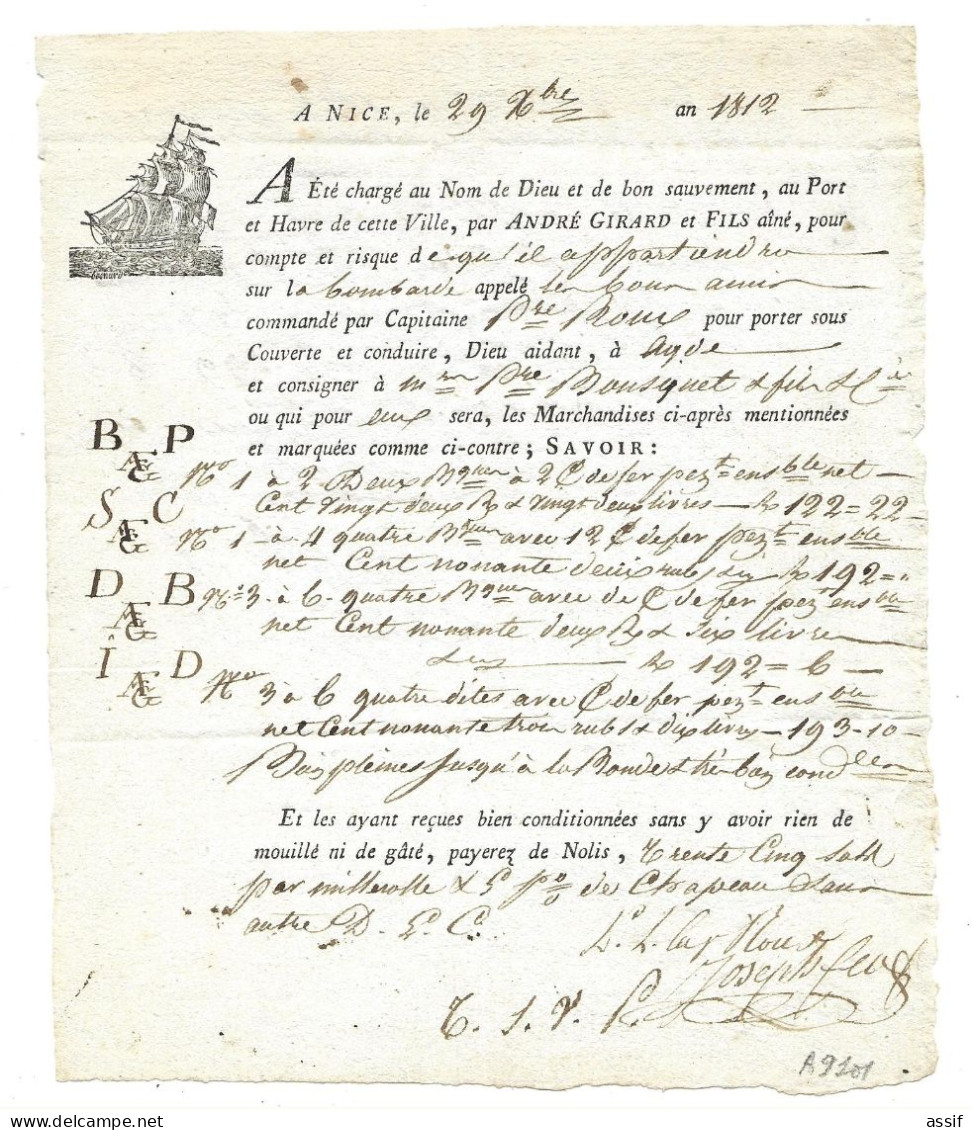 A NICE, le 29 Xbre an 1812
A Été chargé au Nom de Dieu et de bon sauvement, au Port
et Havre de cette Ville, par ANDRÉ GIRARD et FILS aîné, pour
compte et risque de qu'il appartiendra
sur la bombarde appelé les bons amis
commandé par Capitaine Pre Roux pour porter sous
Couverte et conduire, Dieu aidant, à Agde
et consigner à mrs Pre Bousquet & fils & Cie
ou qui pour eux sera, les Marchandises ci-après mentionnées
et marquées comme ci-contre; SAVOIR:
B P
No 1 à 2 Deux Bques à 2 C de fer pezt ensble net
Cent vingt deux R & vingt deux livres — R 122 = 22
S C
No 1 à 4 quatre Bques avec 12 C de fer pezt ensble
net Cent nonante deux rubs R 192 = "
D B
No 3 à 6 quatre Bques avec de C de fer pezt ensble
net Cent nonante deux R & six livres
R 192 = 6
I D
No 3 à 6 quatre dites avec C de fer pezt ensble
net Cent nonante trois rubs & dix livres — 193-10
pleines jusqu'à la Bonde & très bien condées
Et les ayant reçues bien conditionnées sans y avoir rien de
mouillé ni de gâté, payerez de Nolis, trente Cinq sols
par millerolle & 5 p% de Chapeau sans
autre D. L. C.
Roux
Joseph
T. S. V. P.
A9101
assif
delcampe.net